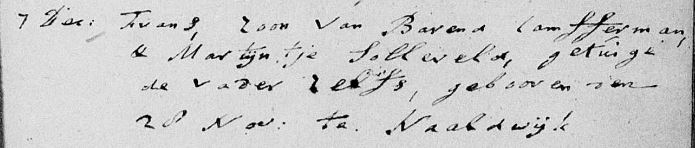 7 Dec: Frans, zoon van Barend
& Martijntje Solleveld, getuige
de vader zelfs, gebooren den
28 Nov: te Naaldwijk